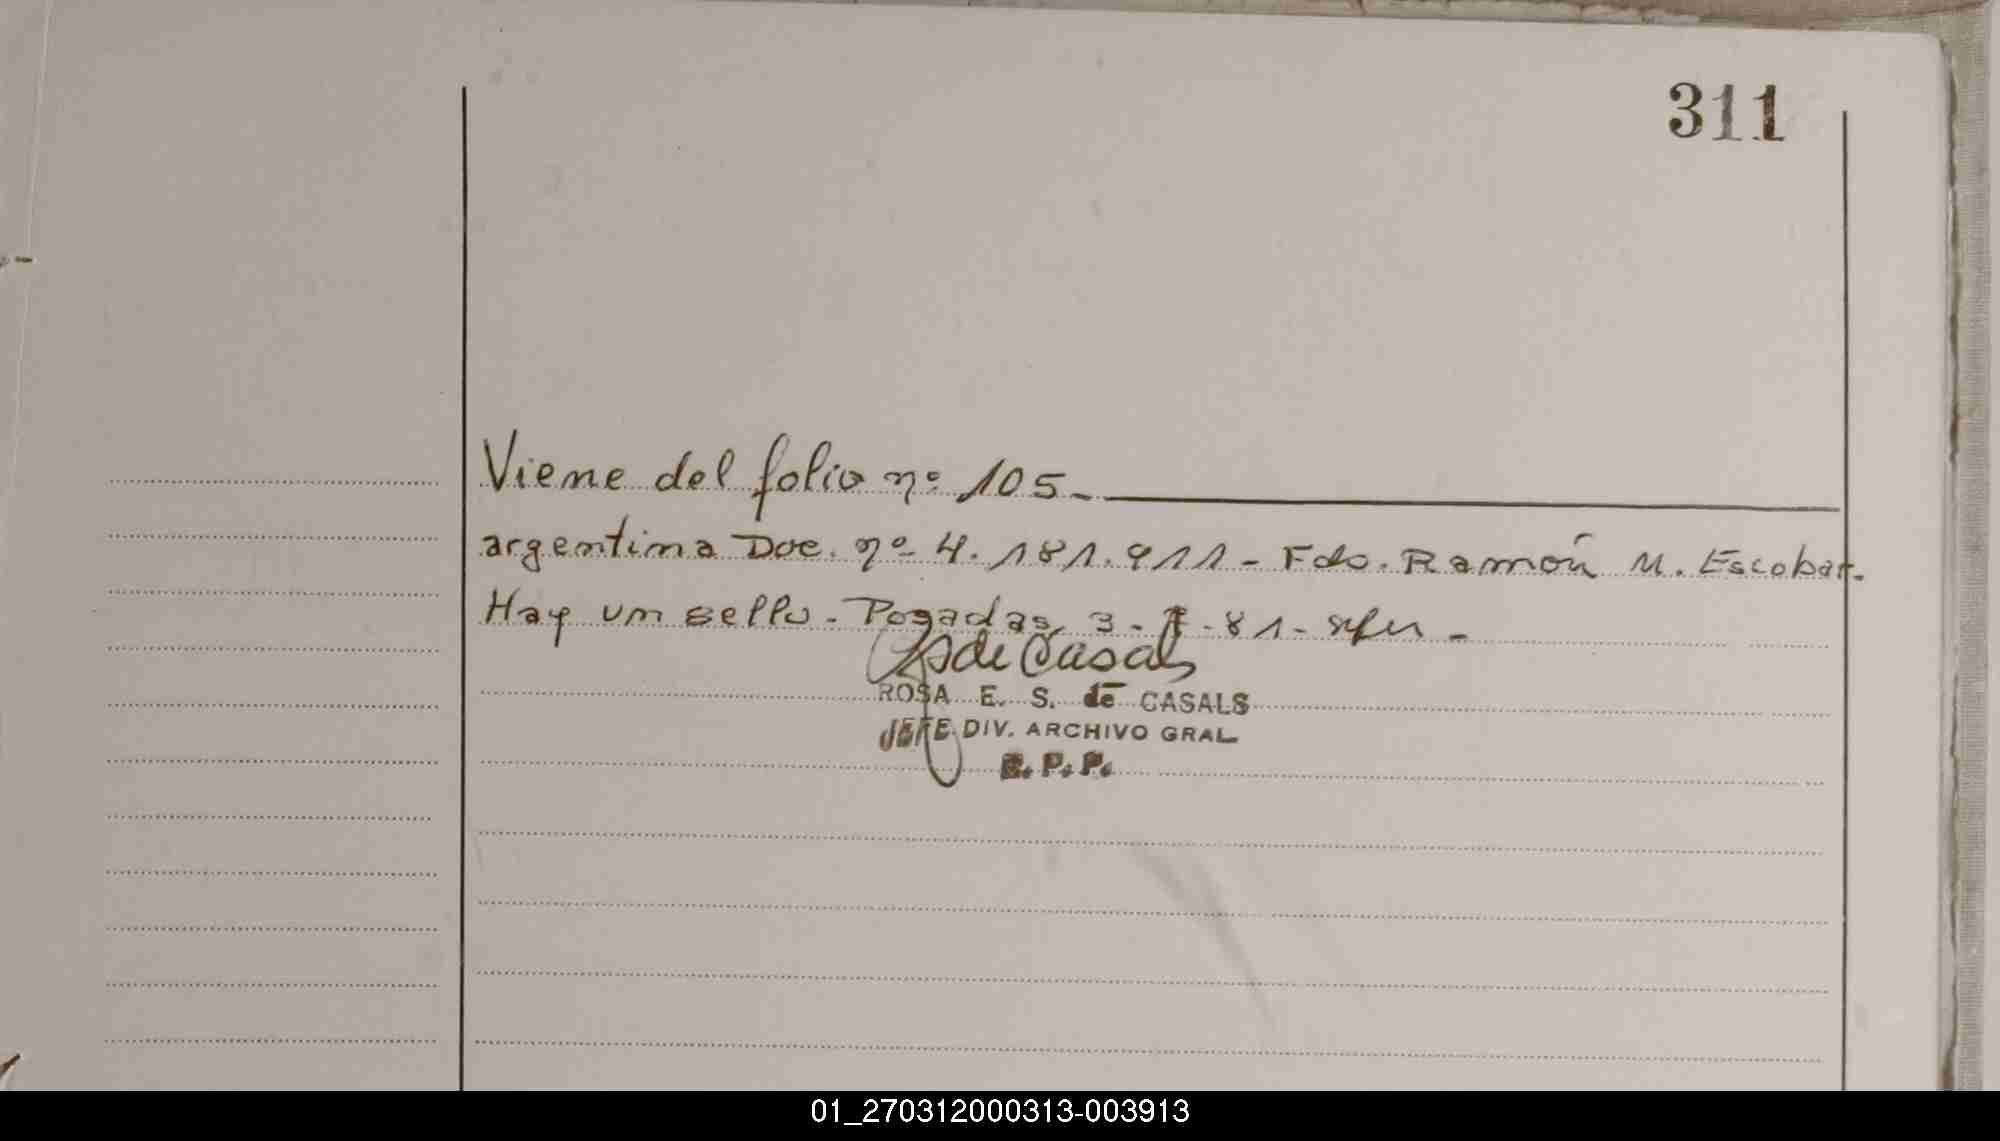 311
Viene del folio nº 105.-
argentina Doc. nº 4.181.911 - Fdo. Ramón M. Escobar.
Hay un sello - Posadas, 3 - 7 - 81 -
de Casals
ROSA E. S. de CASALS
JEFE DIV. ARCHIVO GRAL
R. P. P.
01_270312000313-003913